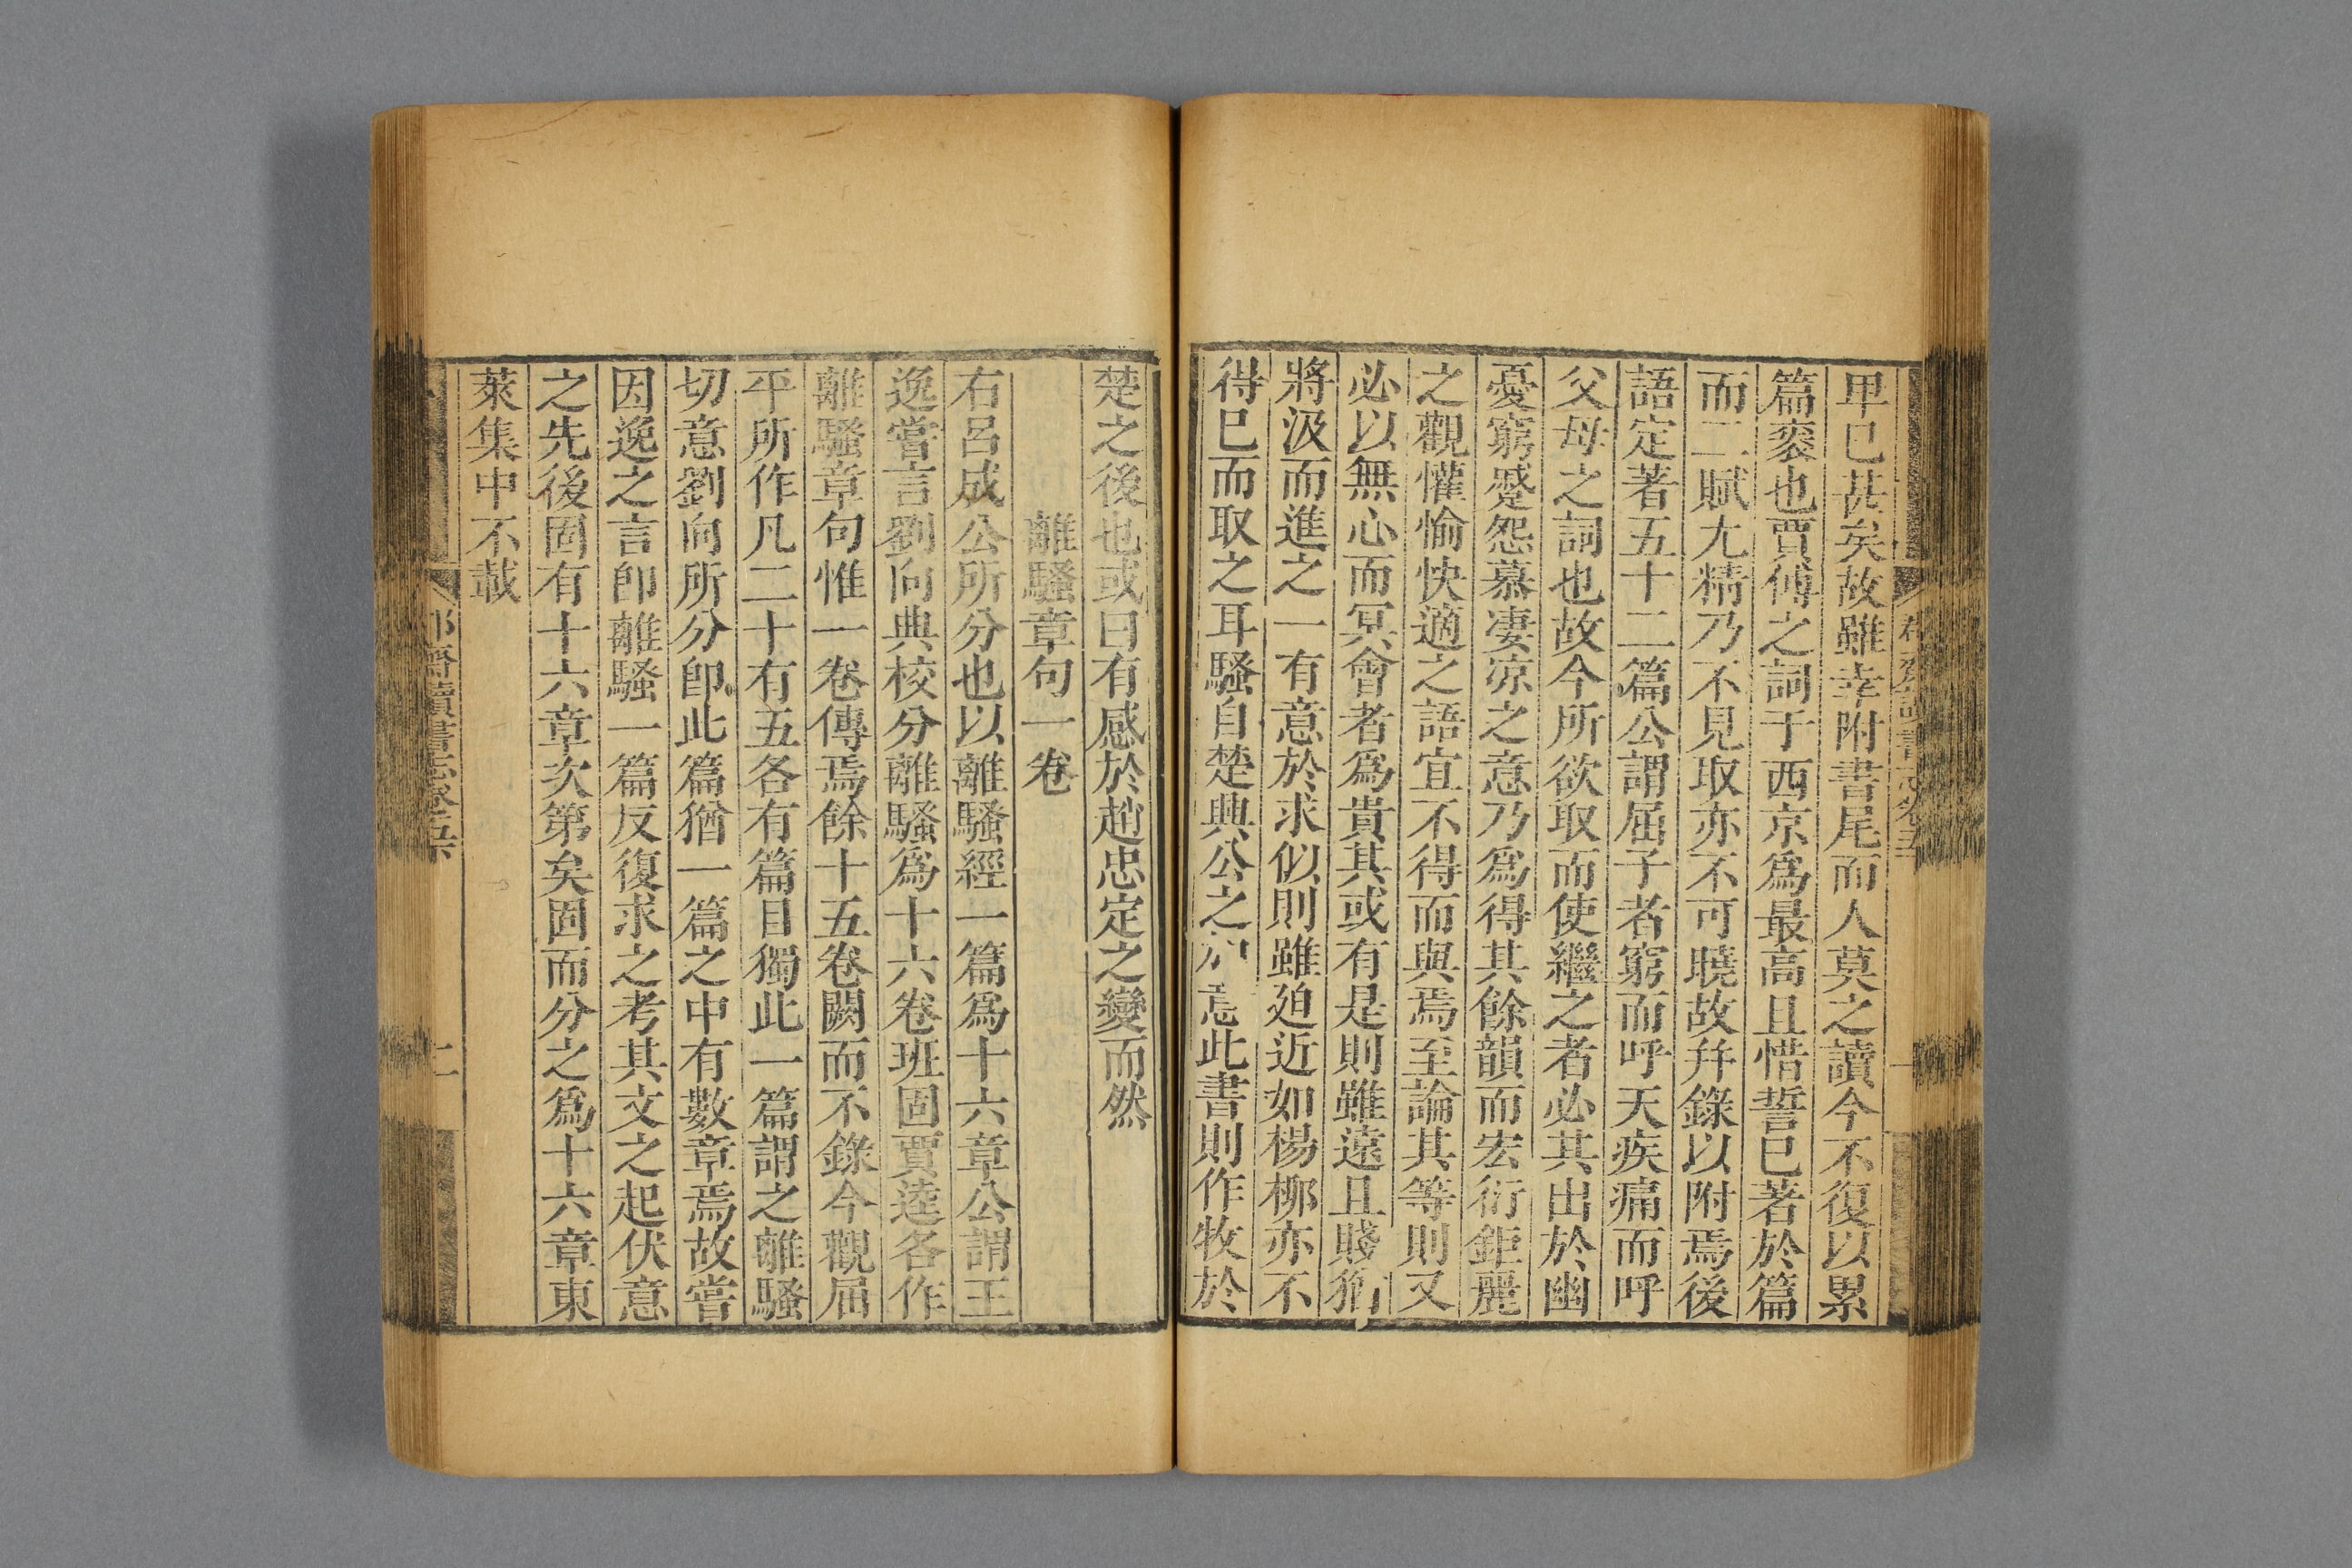 卑已甚矣故雖幸附書尾而人莫之讀今不復以累
篇袠也賈傅之詞于西京爲最高且惜誓已著於篇
而二賦尤精乃不見取亦不可曉故幷錄以附焉後
語定著五十二篇公謂屈子者窮而呼天疾痛而呼
父母之詞也故今所欲取而使繼之者必其出於幽
憂窮蹙怨慕凄凉之意乃爲得其餘韻而宏衍鉅麗
之觀懽愉快適之語宜不得而與焉至論其等則又
必以無心而冥會者爲貴其或有是則雖遠且賤猶
將汲而進之一有意於求似則雖迫近如楊柳亦不
得已而取之耳騷自楚興公之加意此書則作牧於
楚之後也或曰有感於趙忠定之變而然
離騷章句一卷
右呂成公所分也以離騷經一篇爲十六章公謂王
逸嘗言劉向典校分離騷爲十六卷班固賈逵各作
離騷章句惟一卷傳焉餘十五卷闕而不錄今觀屈
平所作凡二十有五各有篇目獨此一篇謂之離騷
切意劉向所分卽此篇猶一篇之中有數章焉故嘗
因逸之言卽離騷一篇反復求之考其文之起伏意
之先後固有十六章次第矣因而分之爲十六章東
萊集中不載
郡齋讀書志卷五 二